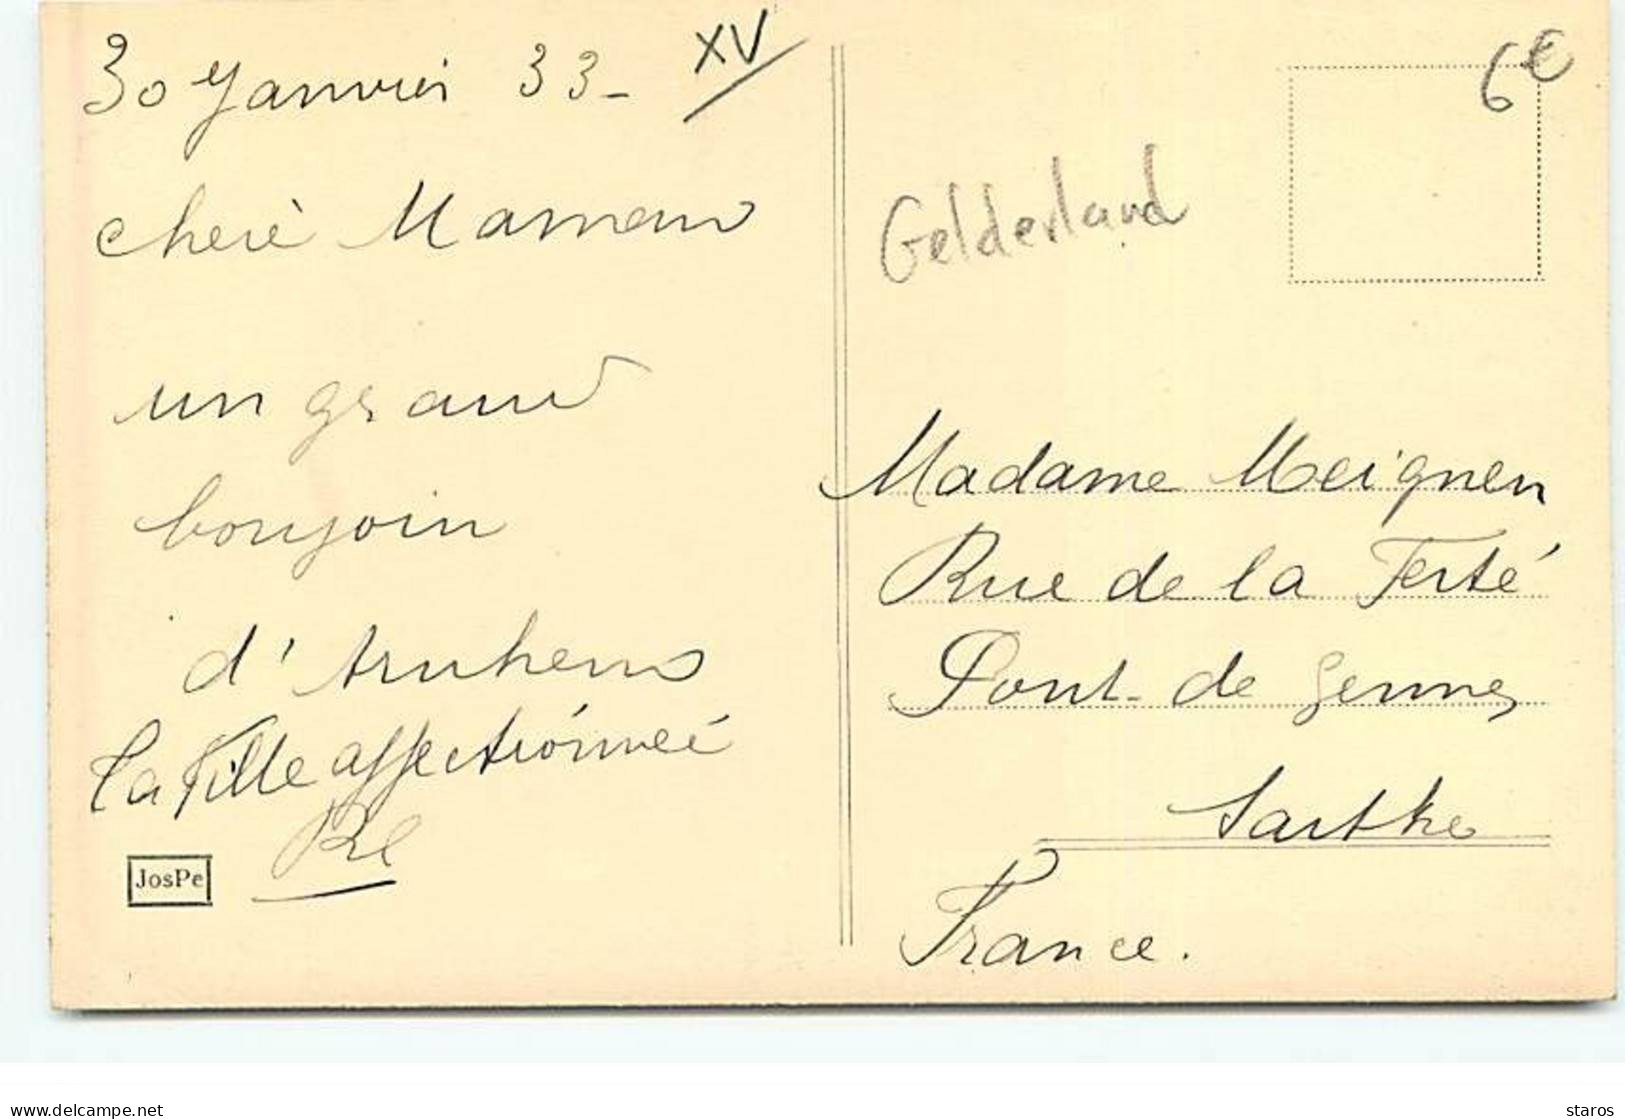 30 Janvier 33 - XV
cherè Maman
un grand
bonjoin
d'Arnhem
ta fille affectionneé
JosPe
6€
Gelderland
Madame Meignen
Rue de la Ferté
Pont-de Gennes
Sarthe
France.
delcampe.net
staros